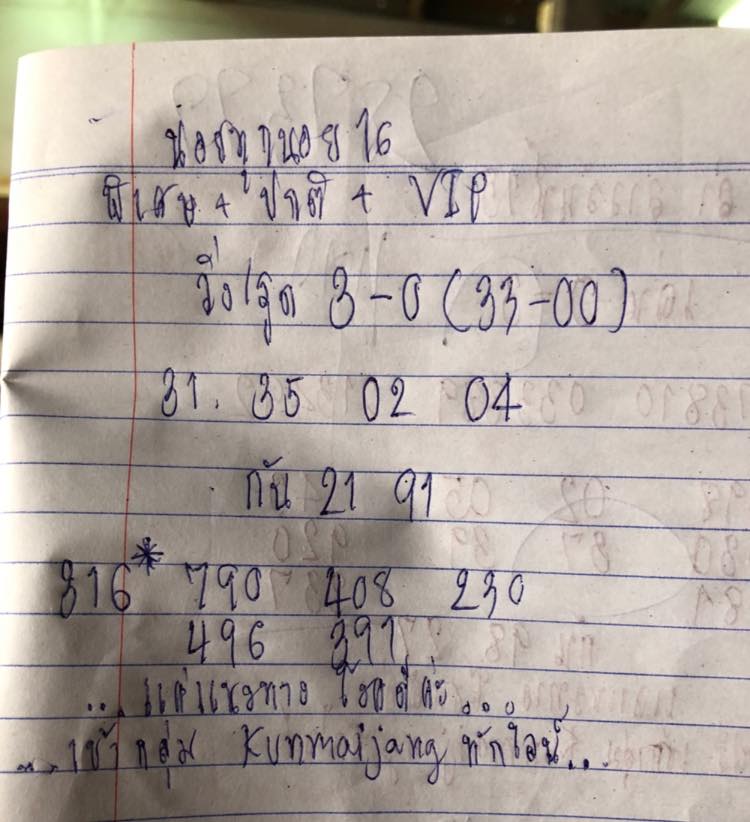 น่อยทำนอย 16
พิเศษ + ปกติ + VIP
วิ่ง/รูด 3-0 (33-00)
31. 35 02 04
กัน 21 91
316* 790 408 230
496 391
...แค่แนวทาง โชคดีค่ะ...
....เข้ากลุ่ม Kunmaijang ทักไลน์...